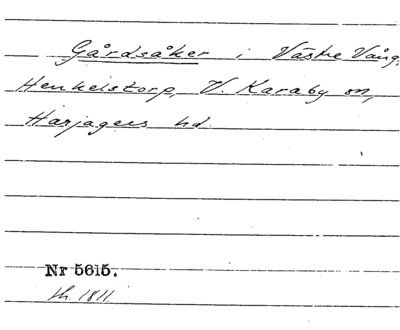 Gårdsåker i Västre Vång,
Henkelstorp, V. Karaby sn,
Harjagers hd.
Nr 5615.
th. 1811